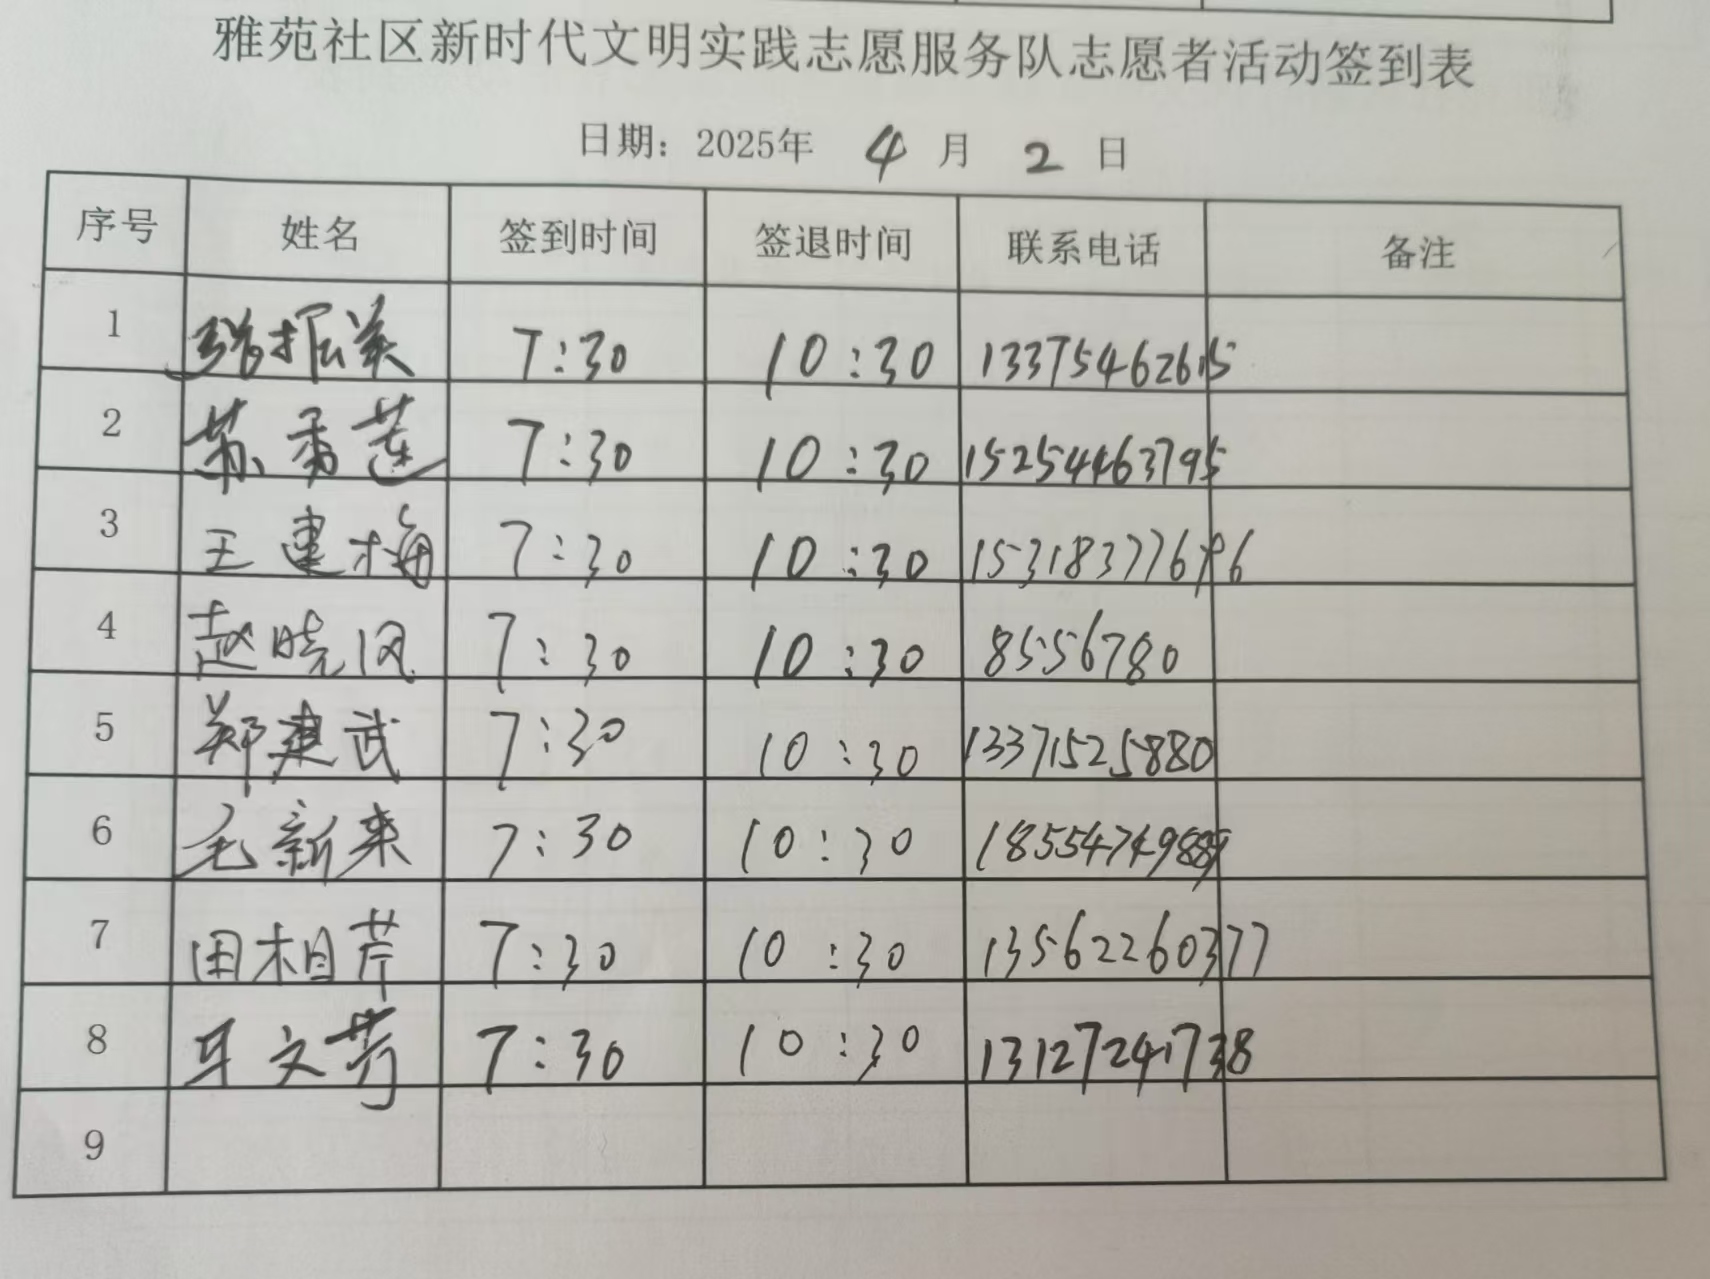 雅苑社区新时代文明实践志愿服务队志愿者活动签到表
日期：2025年 4 月 2 日
序号 姓名 签到时间 签退时间 联系电话 备注
1 7:30 10:30 13375462615
2 苏秀莲 7:30 10:30 15254463795
3 王建梅 7:30 10:30 15318377696
4 赵晓凤 7:30 10:30 8556780
5 郑建武 7:30 10:30 13371525880
6 毛新来 7:30 10:30
7 田相芹 7:30 10:30 13562260377
8 牙文芳 7:30 10:30 13127241738
9